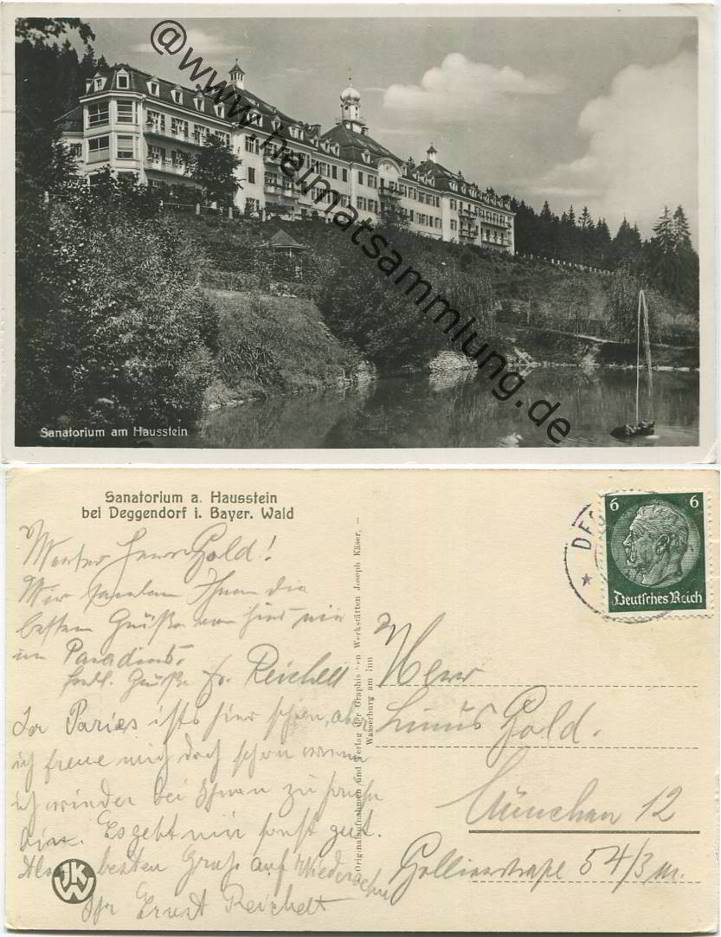 @www.heimatsammlung.de
Sanatorium am Hausstein
Sanatorium a. Hausstein
bei Deggendorf i. Bayer. Wald
Werter Herr Gold!
Wir senden Ihnen die
besten Grüße von hier wie
im Paradies.
Grüße Fr. Reichelt
Paries ists hier schön, aber
ich freue mich doch schon wenn
ich wieder bei Ihnen zu Hause
bin. Es geht mir sonst gut.
Also besten Gruß auf Wiedersehn
Ihr Ernst Reichelt
JKW
Originalaufnahmen und Verlag der Graphischen Werkstätten Joseph Käser,
Wasserburg am Inn
DE
6 6
Deutsches Reich
Herr
Linus Gold.
München 12
Gollierstraße 54/3 m.